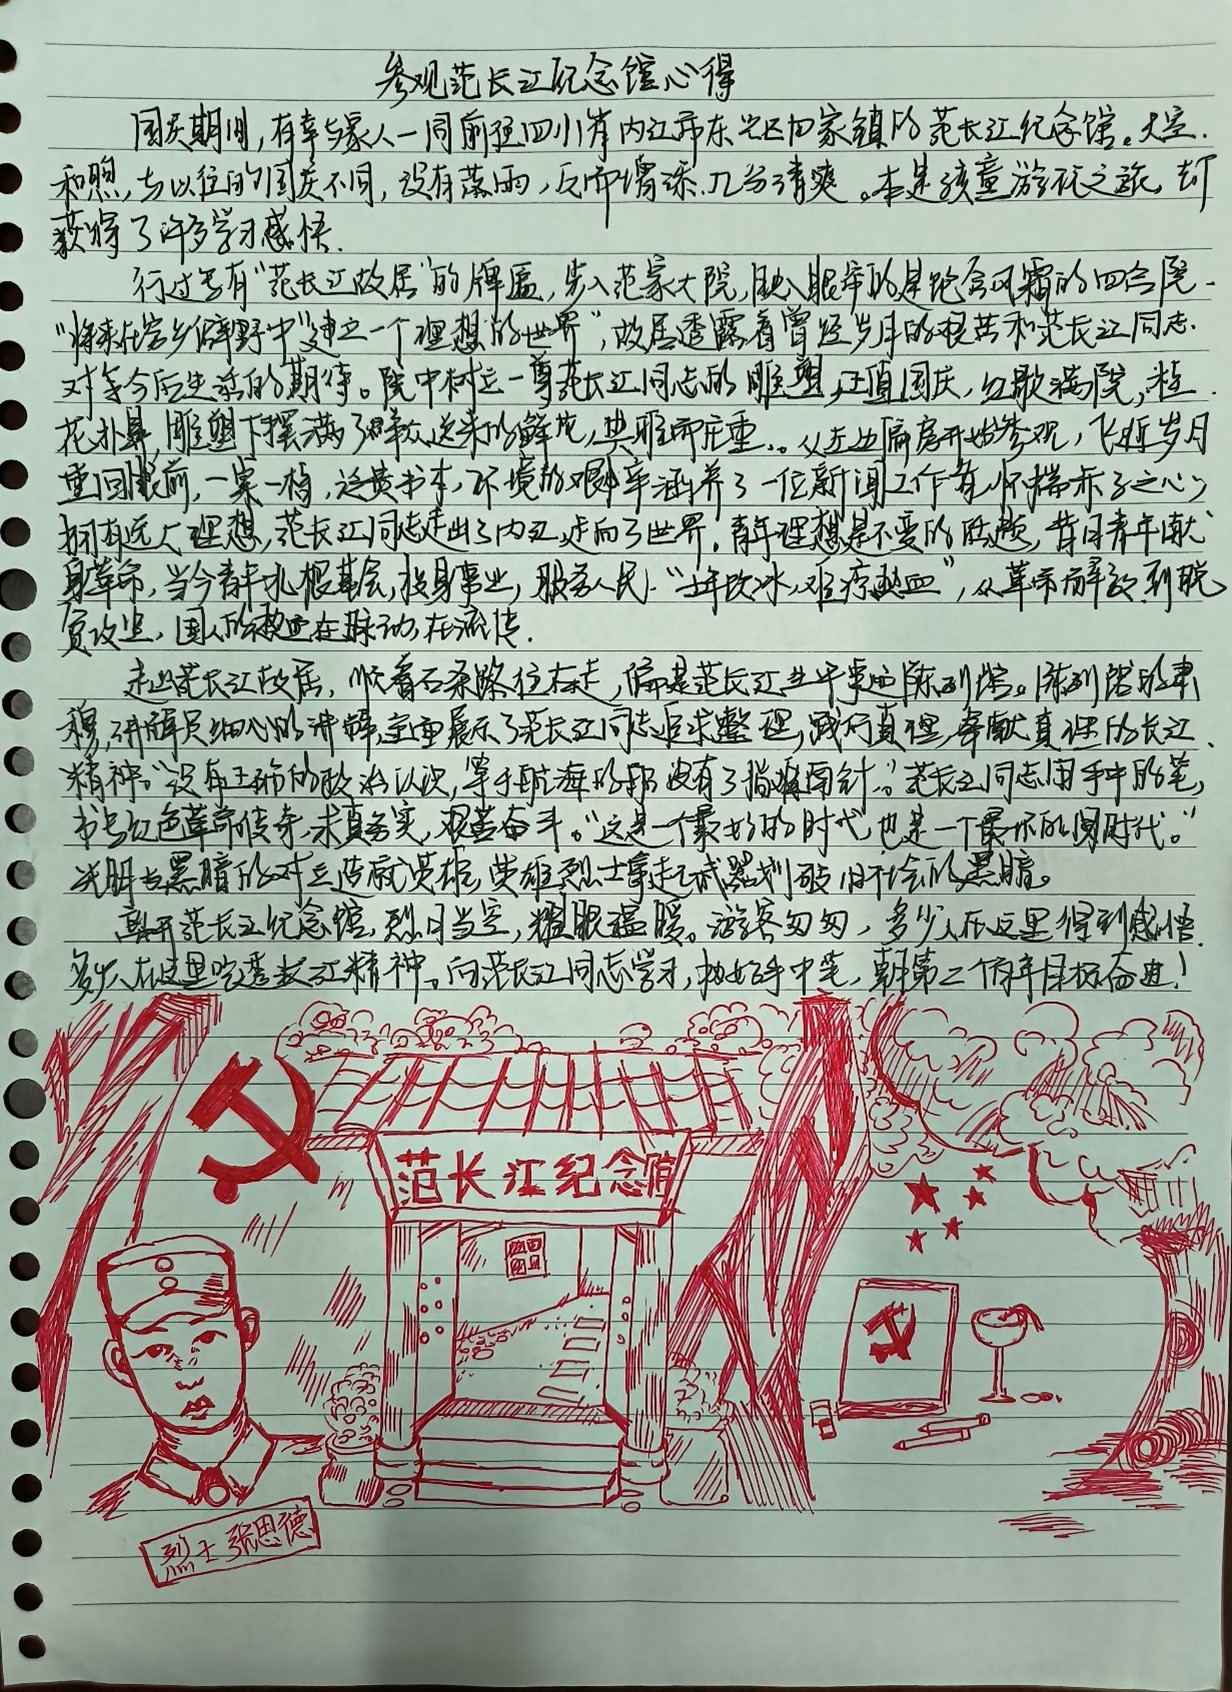 参观范长江纪念馆心得
国庆期间，有幸与家人一同前往四川省内江市东兴区田家镇的范长江纪念馆。天空
和煦，与以往的国庆不同，没有落雨，反而增添几分清爽。本是孩童游玩之旅，却
获得了许多学习感悟.
行过写有“范长江故居”的牌匾，步入范家大院，映入眼帘的是饱含风霜的四合院.
“将来在穷乡僻野中建立一个理想的世界”，故居透露着曾经岁月的艰苦和范长江同志
对于今后生活的期待。院中树立一尊范长江同志的雕塑，正值国庆，红歌满院，
花扑鼻，雕塑下摆满了群众送来的鲜花，典雅而庄重。从左边偏房开始参观，飞逝岁月
重回眼前，一桌一椅，泛黄书本，环境的艰辛涵养了一位新闻工作者怀揣赤子之心，
拥有远大理想，范长江同志走出了内江，走向了世界。青年理想是不变的话题，昔日青年献
身革命，当今青年扎根基层，投身事业，服务人民.“十年饮冰，难凉热血”，从革命解放到脱
贫攻坚，国人的热血在脉动，在流传.
走出范长江故居，顺着石条路往右走，便是范长江生平事迹陈列馆。陈列馆的肃
穆，讲解员细心的讲解，展示了范长江同志追求真理，践行真理，奉献真理的长江
精神。“没有正确的政治认识，等于航海的船没有了指南针。”范长江同志用手中的笔，
书写红色革命传奇，求真务实，艰苦奋斗。“这是一个最好的时代，也是一个最坏的时代。”
光明与黑暗的对立造就英雄，英雄烈士拿起武器划破旧社会的黑暗。
离开范长江纪念馆，烈日当空，耀眼温暖。游客匆匆，多少人在这里得到感悟
多少人在这里长江精神。向范长江同志学习，执好手中笔，朝第二个百年目标奋进！
范长江纪念馆
烈士张思德